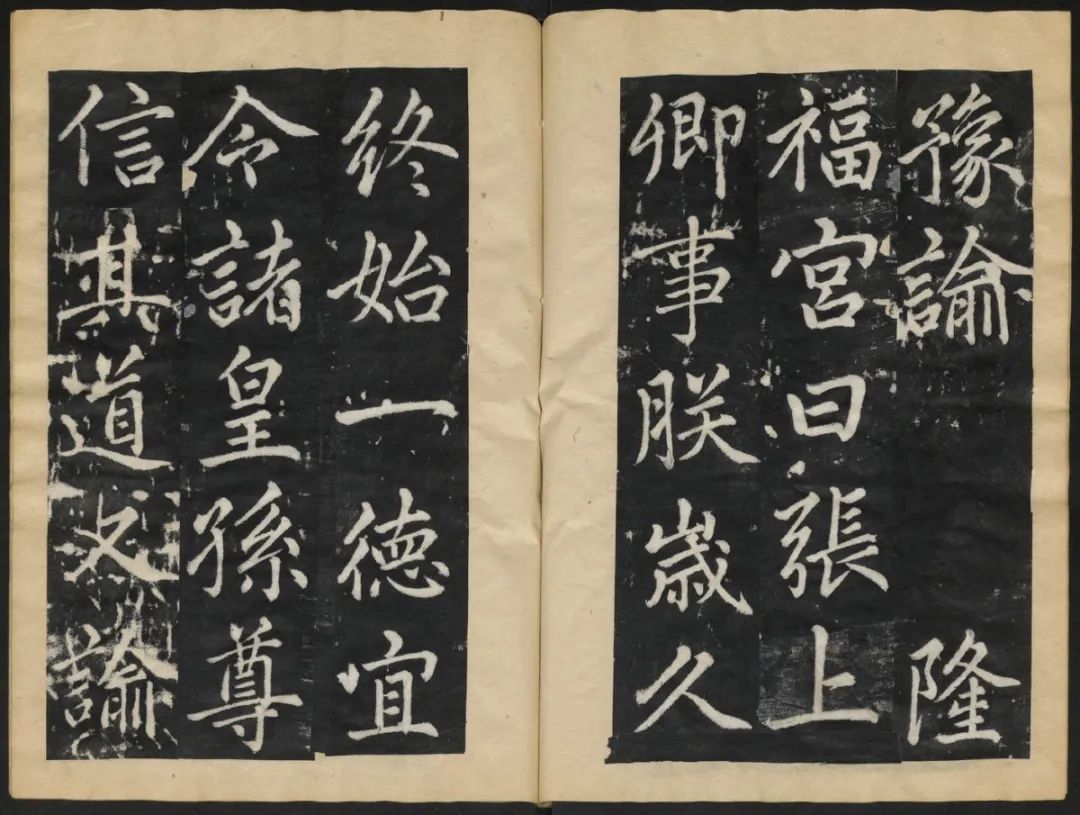 豫諭　　隆
福宮曰張上
卿事朕歲久
終始一德宜
令諸皇孫尊
信其道又諭